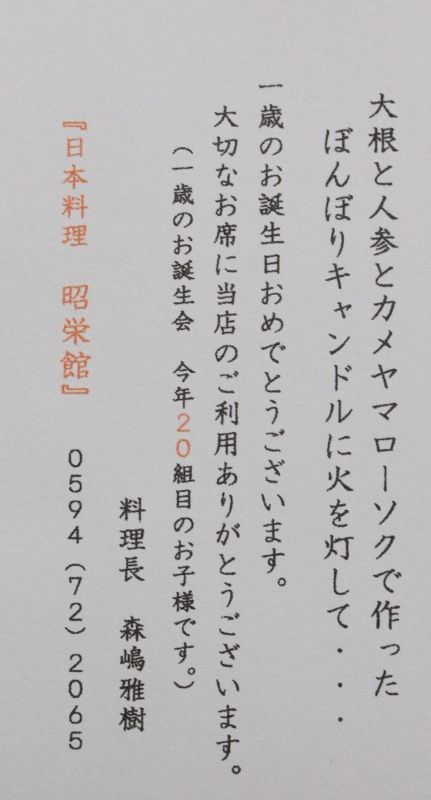 大根と人参とカメヤマローソクで作った
ぼんぼりキャンドルに火を灯して・・・
一歳のお誕生日おめでとうございます。
大切なお席に当店のご利用ありがとうございます。
（一歳のお誕生会　今年２０組目のお子様です。）
料理長　森嶋雅樹
『日本料理　昭栄館』　０５９４（７２）２０６５